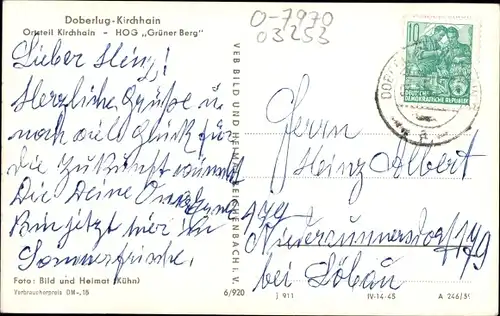 Doberlug-Kirchhain
Ortsteil Kirchhain - HOG „Grüner Berg"
O-7970
03253
10
DEUTSCHE
DEMOKRATISCHE REPUBLIK
Lieber Heinz!
Herzliche Grüße u.
noch viel Glück für
die Zukunft wünscht
Dir Deine
Bin jetzt hier in
Sommerfrische.
VEB BILD UND HEIMAT REICHENBACH I. V.
Herrn
Heinz Albert
Niedercunnersdorf 179
bei Löbau
Foto: Bild und Heimat (Kühn)
Verbraucherpreis DM -,15
6/920
J 911
IV-14-45
A 246/59